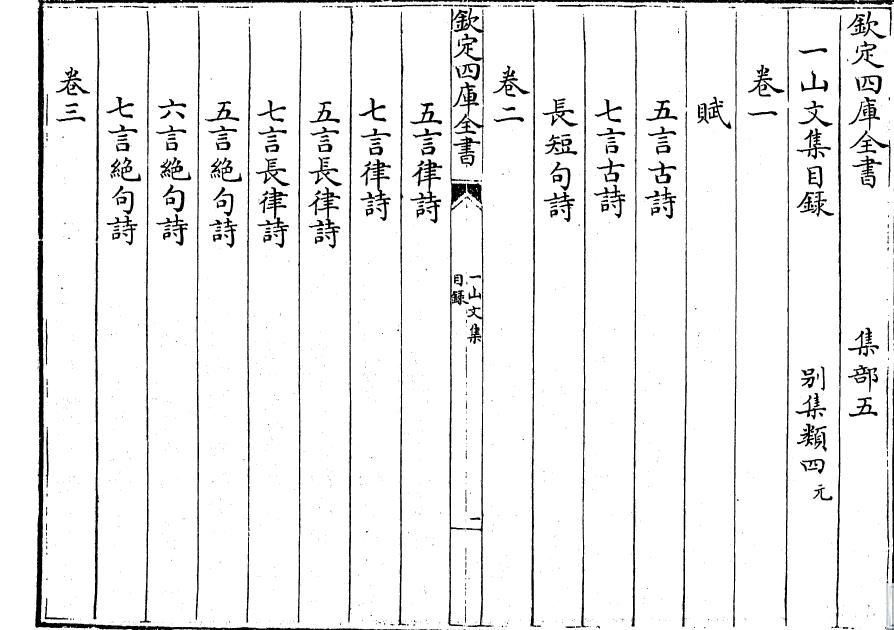 欽定四庫全書 集部五
一山文集目録 别集類四元
卷一
賦
五言古詩
七言古詩
長短句詩
卷二
欽定四庫全書 一山文集目録 一
五言律詩
七言律詩
五言長律詩
七言長律詩
五言絶句詩
六言絶句詩
七言絶句詩
卷三